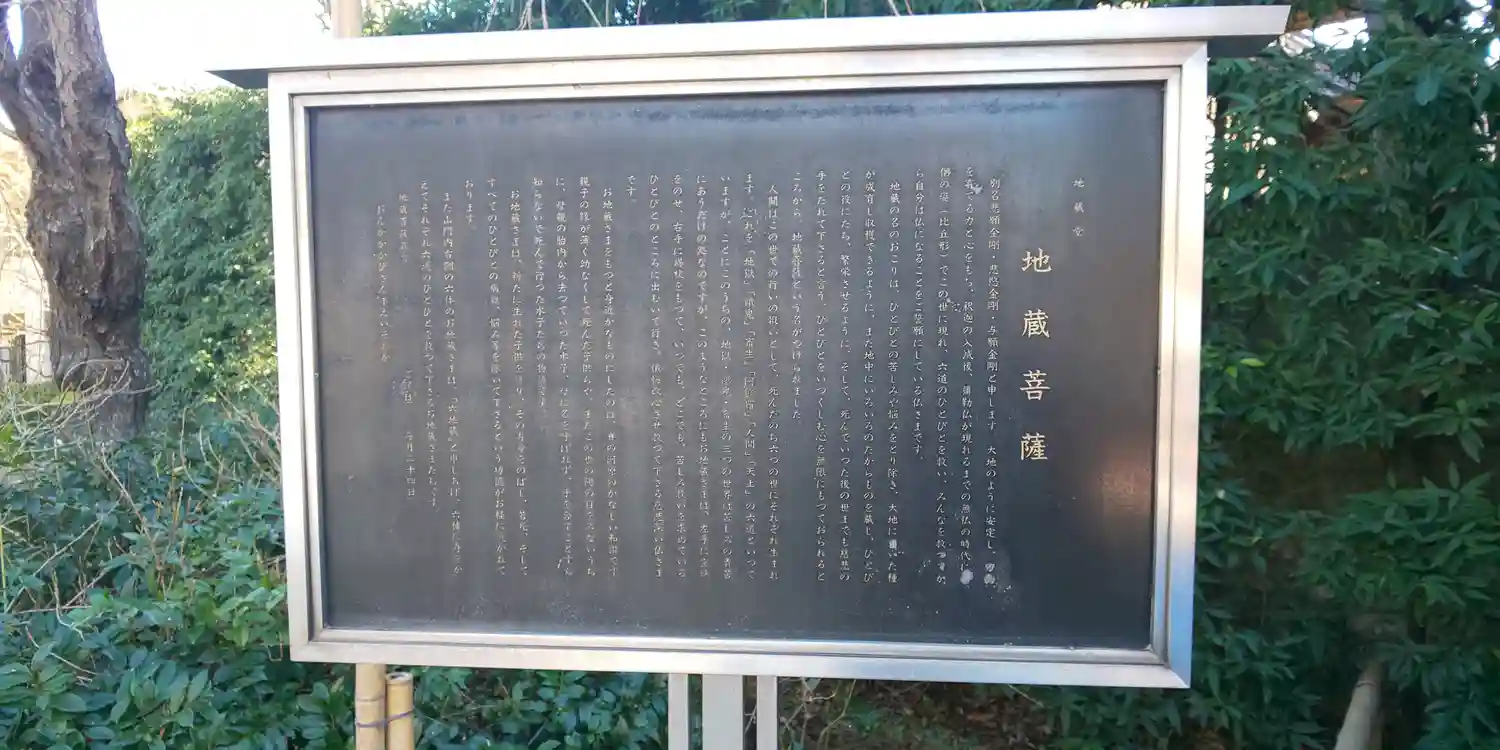 地蔵堂
地蔵菩薩
別名悲願金剛・悲愍金剛・与願金剛と申します 大地のように安定し、
を育てる力と心をもち、釈迦の入滅後、彌勒仏が現れるまでの無仏の時代に、
僧の姿(比丘形)でこの世に現れ、六道のひとびとを救い、みんなを救つ
ら自分は仏になることをご誓願にしている仏さまです。
地蔵の名のおこりは、ひとびとの苦しみや悩みをとり除き、大地に蒔いた種
が成育し収穫できるように、また地中にいろいろのたからものを蔵し、ひとび
との役にたち、繁栄させるように、そして、死んでいつた後の世までも慈悲の
手をたれて下さると言う、ひとびとをいつくしむ心を無限にもつておられると
ころから、地蔵菩薩という名がつけられました。
人間はこの世で の報いとして、死んだのち六つの世にそれぞれ生まれ
ます。これを「地獄」「餓鬼」「畜生」「阿修羅」「人間」「天上」の六道といつて
いますが、ことにこのうちの、地獄・餓鬼・畜生の三つの世界は苦しみの
にあうだけの処なのですが、このようなところにもお地蔵さまは、左手に宝珠
をのせ、右手に錫杖をもつて、いつでも、どこでも、苦しみ救いを求めている
ひとびとのところに出むいて行き、 させ救つて下さる慈悲深い仏さま
です。
お地蔵さまをもつと身近かなものにしたのは、 の河原のかなしい和讃です
親子の縁が薄く幼なくして死んだ子供らや、またこの世の陽の目をみないうち
に、母親の胎内から去つていつた水子、 ことすら
知らないで死んで行つた水子たちの物語です。
お地蔵さまは、新たに生れた子供を守り、その寿命をのばし、 、そして
すべてのひとびとの病気、悩み等を除いて下さるという功徳がお経に て
おります。
また山門内右側の六体のお地蔵さまは、「六地蔵」と申しあげ、六体に身をか
えてそれぞれ六道のひとびとを救つて下さるお地蔵さまたちです。
地蔵菩薩真言
おんかかかびさんまえいそわか
ご縁日 毎月二十四日